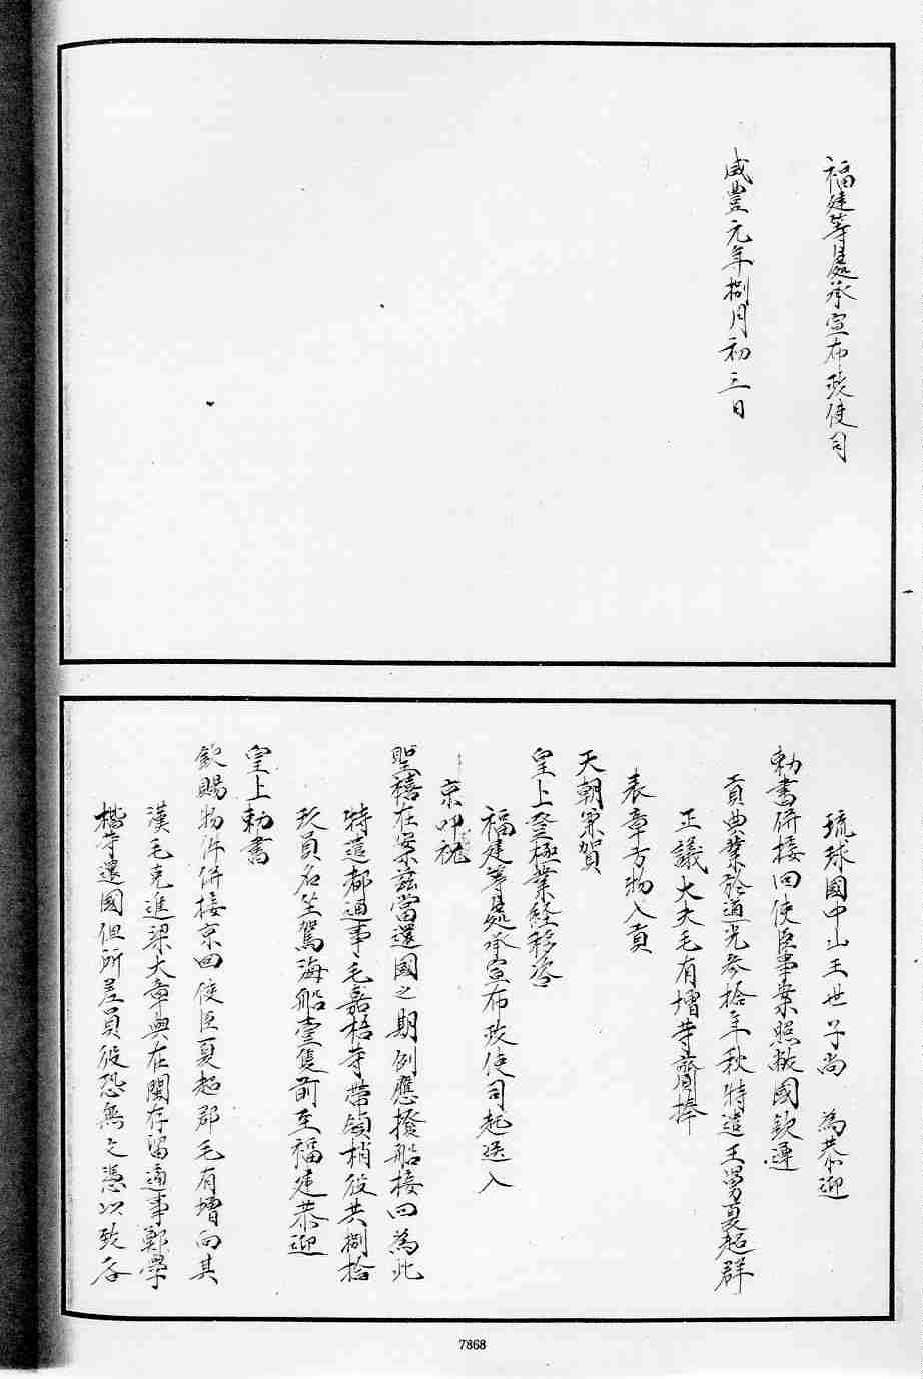 福建等處承宣布政使司
咸豐元年捌月初三日
琉球國中山王世子尚 為恭迎
勅書併接回使臣事案照敝國欽遵
貢典業於道光參拾年秋特遣王舅夏超群
正議大夫毛有增等齎捧
表章方物入貢
天朝稟賀
皇上登極業經移咨
福建等處承宣布政使司起送入
京叩祝
聖禧在案茲當還國之期例應撥船接回為此
特遣都通事毛嘉梧等帶領梢役共捌拾
玖員名坐駕海船壹隻前至福建恭迎
皇上勅書
欽賜物件併接京回使臣夏超群毛有增向其
漢毛克進梁大章與在閩存留通事鄭學
楷等還國但所差員役恐無文憑以致各
7868